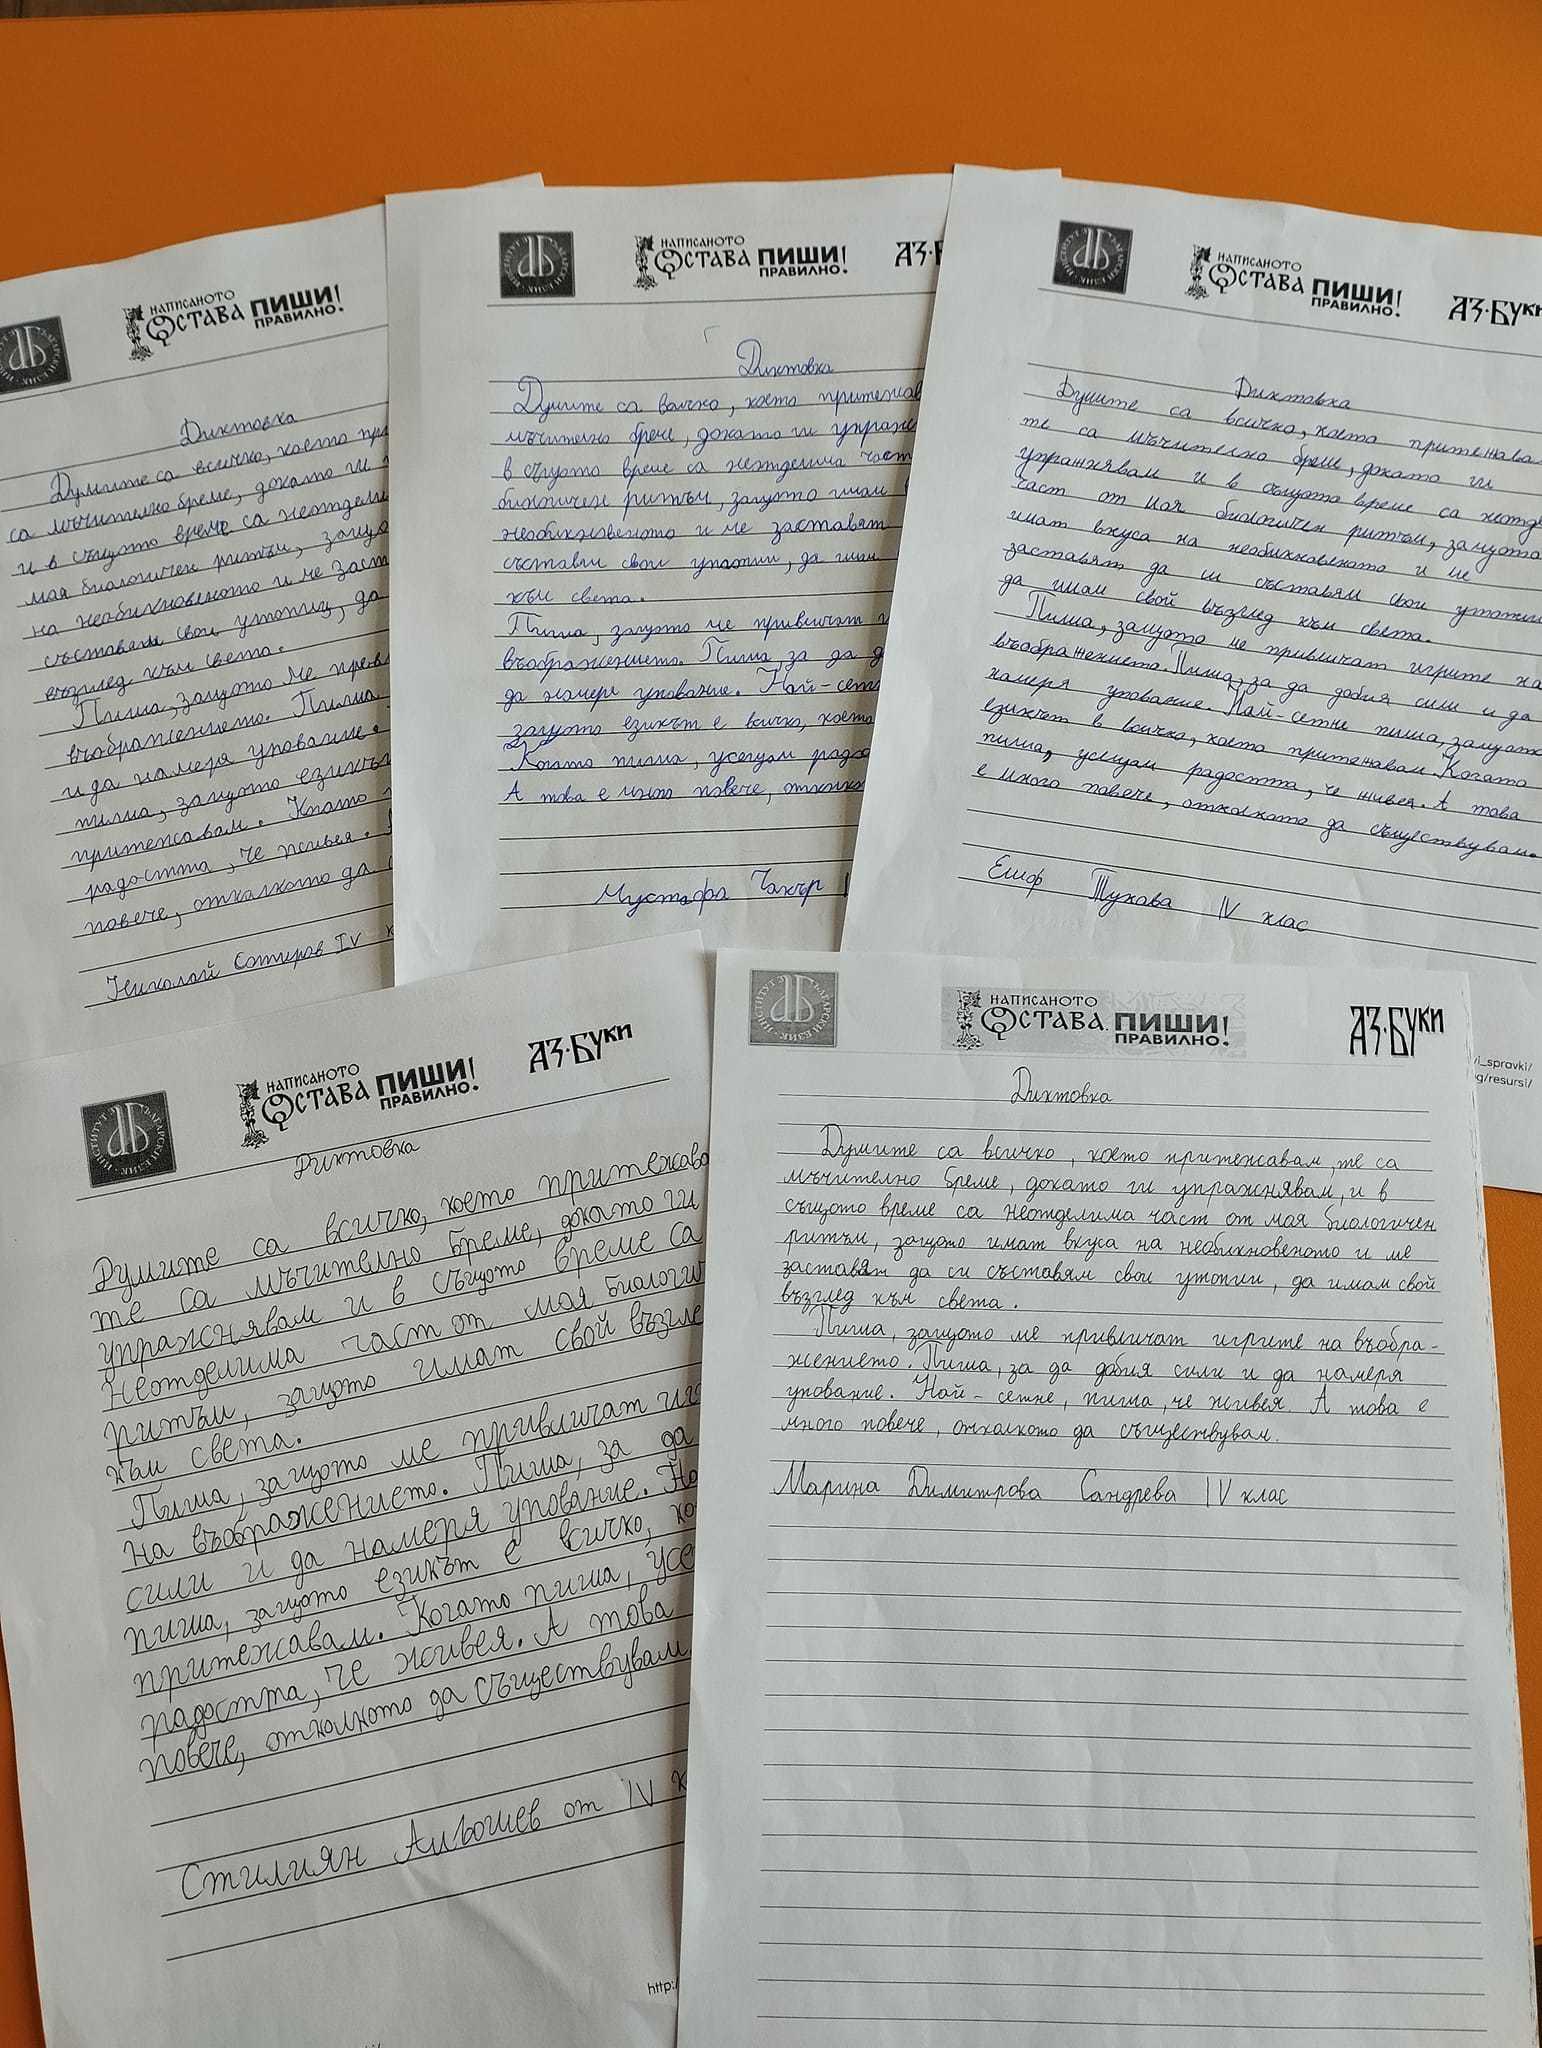 ИНСТИТУТ ЗА БЪЛГАРСКИ ЕЗИК
НАПИСАНОТО
ОСТАВА ПИШИ
ПРАВИЛНО!
Диктовка
Думите са всичко, което пр
са мъчително бреме, докато ги
и в същото време са неотдели
моя биологичен ритъм, защо
на необикновеното и ме заст
съставям свои утопии, да
възглед към света.
Пиша, защото ме превл
въображението. Пиша
и да намеря упование.
пиша, защото езикът
притежавам. Когато
радостта, че живея.
повече, отколкото да
Николай Сотиров IV к
ИНСТИТУТ ЗА БЪЛГАРСКИ ЕЗИК
НАПИСАНОТО
ОСТАВА ПИШИ
ПРАВИЛНО!
АЗ·Б
Диктовка
Думите са всичко, което притежав
мъчително брече, докато ги упраж
в същото време са неотделима част
ритъм, защото имат
и ме заставят
свои утопии, да имам
към света.
Пиша, защото ме привличат и
въображението. Пиша, за да д
да намеря упование. Най-сетн
защото езикът е всичко, което
Когато пиша, усещам радос
А това е много повече, отколк
Мустафа Чакър I
ИНСТИТУТ ЗА БЪЛГАРСКИ ЕЗИК
НАПИСАНОТО
ОСТАВА ПИШИ
ПРАВИЛНО!
АЗ·БУКИ
Диктовка
Думите са всичко, което притежава
те са мъчително бреме, докато ги
упражнявам и в същото време са неотде
част от моя биологичен ритъм, защото
имат вкуса на необикновеното и ме
заставят да си съставям свои утопии
да имам свой възглед към света.
Пиша, защото ме привличат игрите на
въображението. Пиша, за да добия сили и да
намеря упование. Най-сетне пиша, защото
езикът в всичко, което притежавам. Когато
пиша, усещам радостта, че живея. А това
е много повече, отколкото да съществувам.
Елиф Тукова IV клас
ИНСТИТУТ ЗА БЪЛГАРСКИ ЕЗИК
НАПИСАНОТО
ОСТАВА ПИШИ
ПРАВИЛНО!
АЗ·БУКИ
Диктовка
Думите са всичко, което притежава
те са мъчително бреме, докато ги
упражнявам и в същото време са
неотделима част от моя биологич
ритъм, защото имат свой възгле
към света.
Пиша, защото ме привличат иг
на въображението. Пиша, за да
сили и да намеря упование. На
пиша, защото езикът е всичко, ко
притежавам. Когато пиша, усе
радостта, че живея. А това
повече, отколкото да съществувам.
Стилиян Альошев от IV к
http:/
ИНСТИТУТ ЗА БЪЛГАРСКИ ЕЗИК
НАПИСАНОТО
ОСТАВА. ПИШИ
ПРАВИЛНО!
АЗ·БУКИ
i_spravki/
g/resursi/
Диктовка
Думите са всичко, което притежавам, те са
мъчително бреме, докато ги упражнявам, и в
същото време са неотделима част от моя биологичен
ритъм, защото имат вкуса на необикновеното и ме
заставят да си съставям свои утопии, да имам свой
възглед към света.
Пиша, защото ме привличат игрите на въобра-
жението. Пиша, за да добия сили и да намеря
упование. Най-сетне, пиша, че живея. А това е
много повече, отколкото да съществувам.
Марина Димитрова Сандрева IV клас